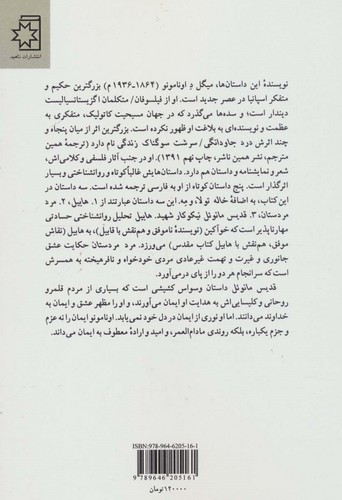 انتشارات ناهید
نویسندهٔ این داستان‌ها، میگل دِ اونامونو (۱۸۶۴-۱۹۳۶ م) بزرگترین حکیم و
متفکر اسپانیا در عصر جدید است. او از فیلسوفان/ متکلمان اگزیستانسیالیست
دیندار است؛ و سده‌ها می‌گذرد که در جهان مسیحیت کاتولیک، متفکری به
عظمت و نویسنده‌ای به بلاغت او ظهور نکرده است. بزرگترین اثر از میان پنجاه و
چند اثرش درد جاودانگی/ سرشت سوگناک زندگی نام دارد (ترجمهٔ همین
مترجم، نشر همین ناشر، چاپ نهم ۱۳۹۱). او در جنب آثار فلسفی و کلامی‌اش،
شعر و نمایشنامه و داستان هم دارد. داستان‌هایش غالباً کوتاه و روانشناختی و بسیار
اثرگذار است. پنج داستان کوتاه از او به فارسی ترجمه شده است. سه داستان در
این کتاب، به اضافهٔ خاله تولا، و مه. این سه داستان عبارتند از ۱. هابیل، ۲. مرد
مردستان، ۳. قدیس مانوئل نیکوکار شهید. هابیل تحلیل روانشناختی حسادتی
مهارناپذیر است که خوآکین (نویسندهٔ ناموفق و هم‌نقش با قابیل)، به هابیل (نقاش
موفق، هم‌نقش با هابیل کتاب مقدس) می‌ورزد. مرد مردستان حکایت عشق
جانوری و غیرت و تهمت غیرعادی مردی خودخواه و نافرهیخته به همسرش
است که سرانجام هر دو را از پای درمی‌آورد.
قدیس مانوئل داستان وسواس کشیشی است که بسیاری از مردم قلمرو
روحانی و کلیسایی‌اش به هدایت او ایمان می‌آورند، و او را مظهر عشق و ایمان به
خداوند می‌دانند. اما او نوری از ایمان در دل خود نمی‌یابد. اونامونو ایمان را نه عزم
و جزم یکباره، بلکه روندی مادام‌العمر، و امید و ارادهٔ معطوف به ایمان می‌داند.
ISBN: 978-964-6205-16-1
9 789646 205161
۱۲۰۰۰۰ تومان